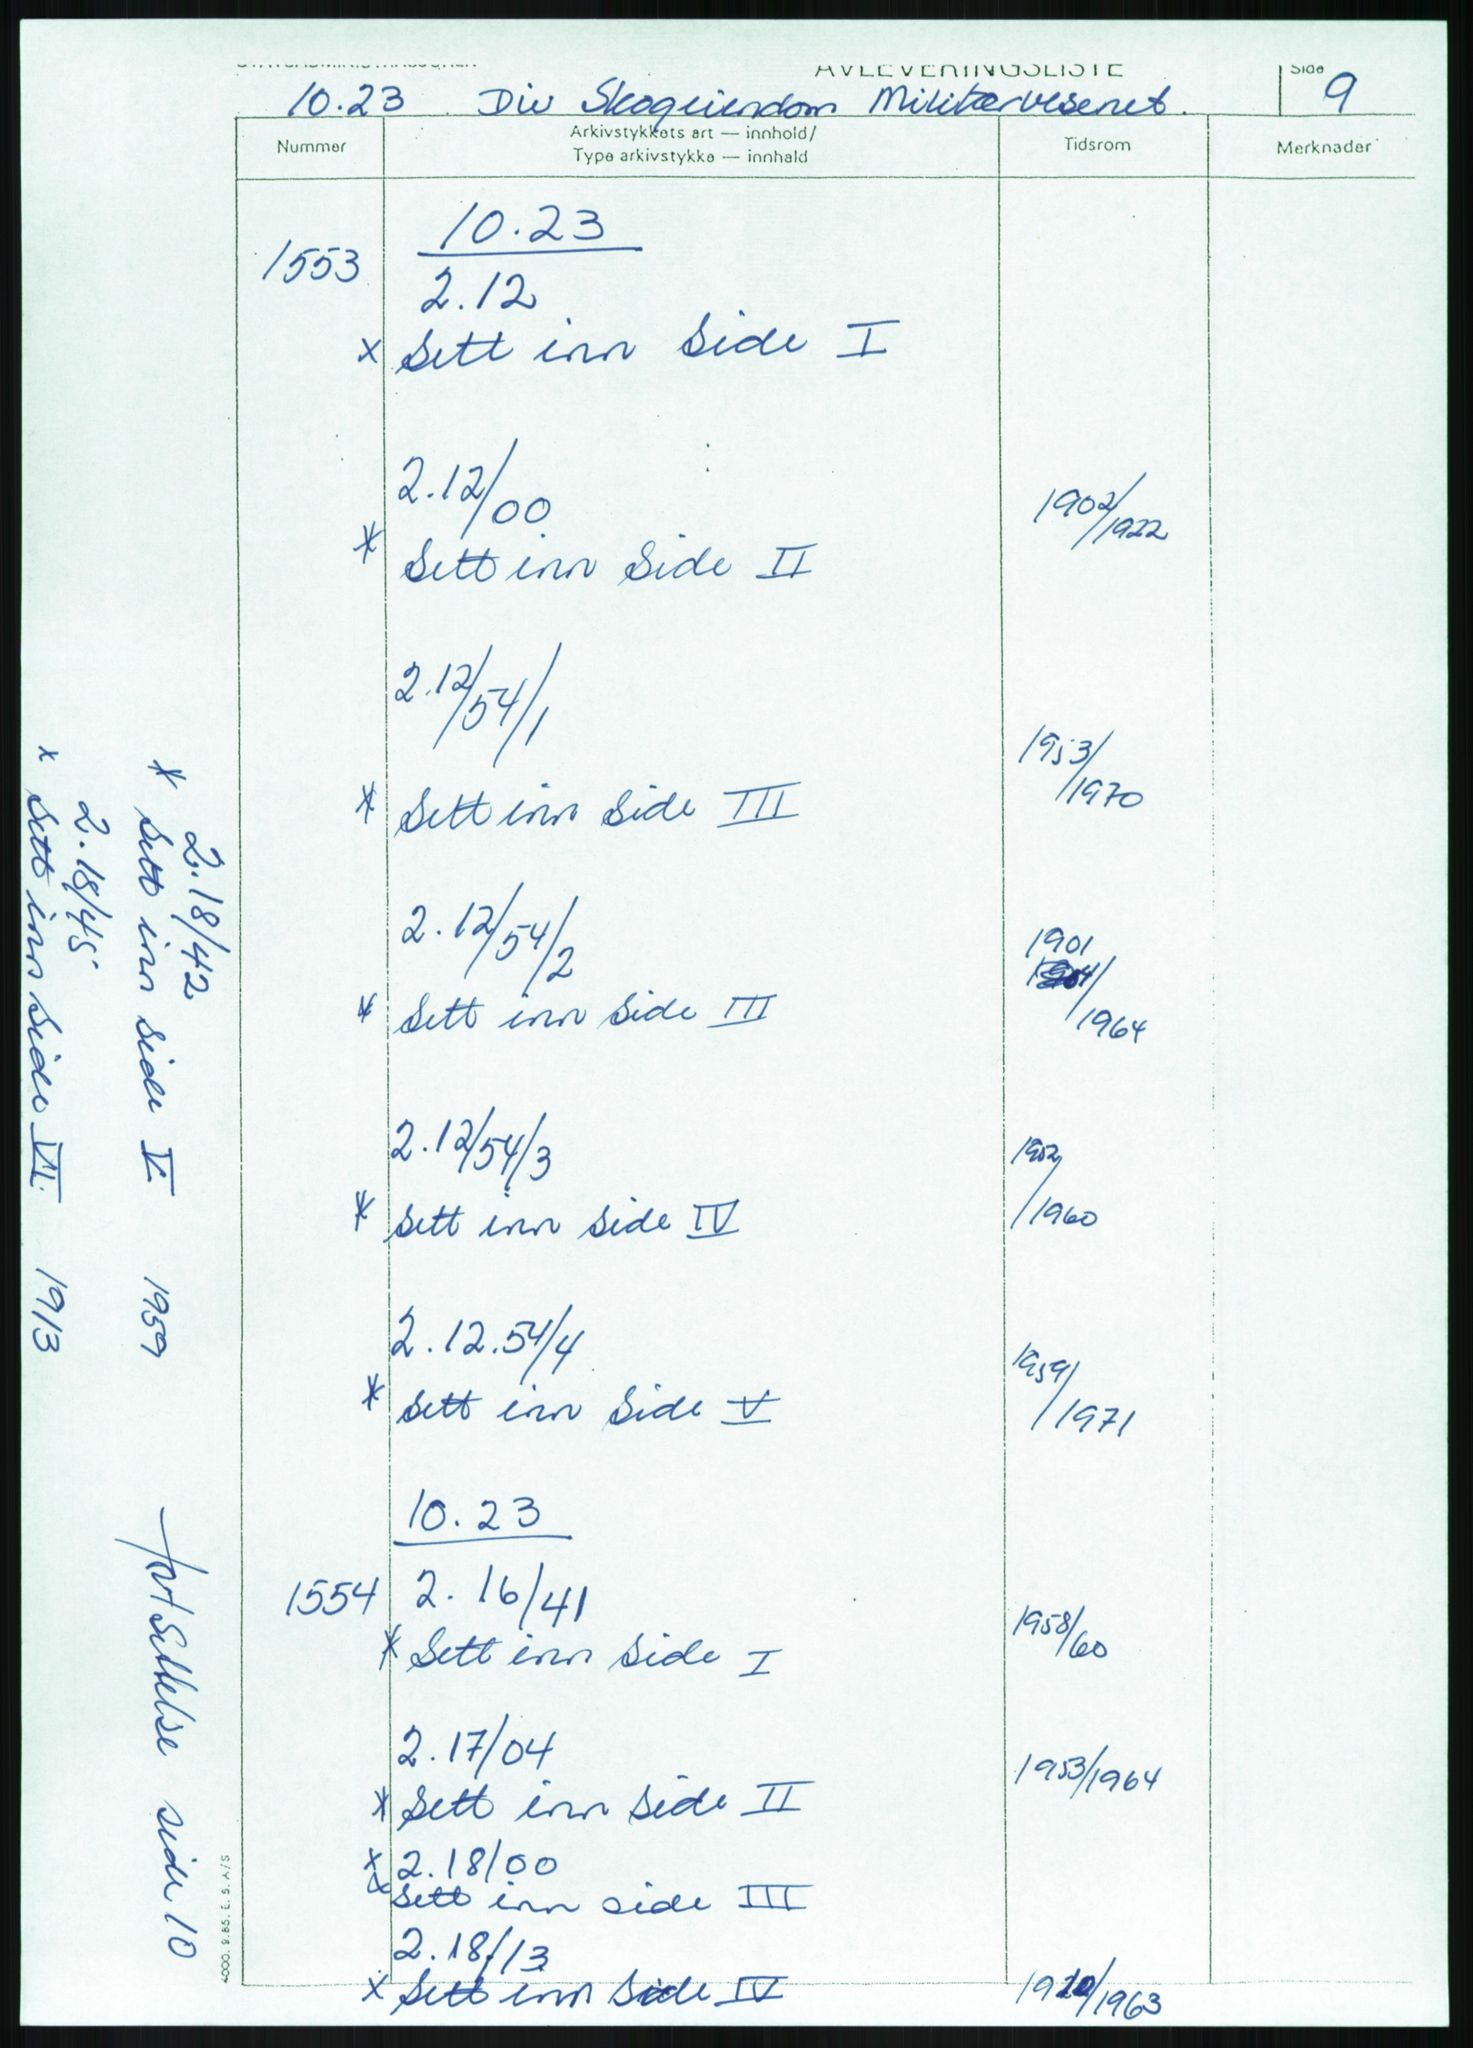 AVLEVERINGSLISTE
Side
9
10.23 Div Skogeiendom Militærvesenet.
Nummer
Arkivstykkets art — innhold/
Type arkivstykke — innhald
Tidsrom
Merknader
10.23
1553
2.12
x Sett inn Side I
2.12/00
1902/1922
* Sett inn Side II
2.12/54/1
1953/1970
* Sett inn Side III
2.12/54/2
1901
/1964
* Sett inn Side III
2.12/54/3
/1960
* Sett inn Side IV
2.12.54/4
1959/1971
* Sett inn Side V
10.23
1554 2.16/41
1958/60
* Sett inn Side I
2.17/04
1953/1964
* Sett inn Side II
x 2.18/00
x Sett inn side III
2.18/13
x Sett inn Side IV
/1963
2.18/42
* Sett inn side V 1959
2.18/45
x Sett inn side VI. 1913
fortsettelse side 10
4000. 9.85. E. S. A/S